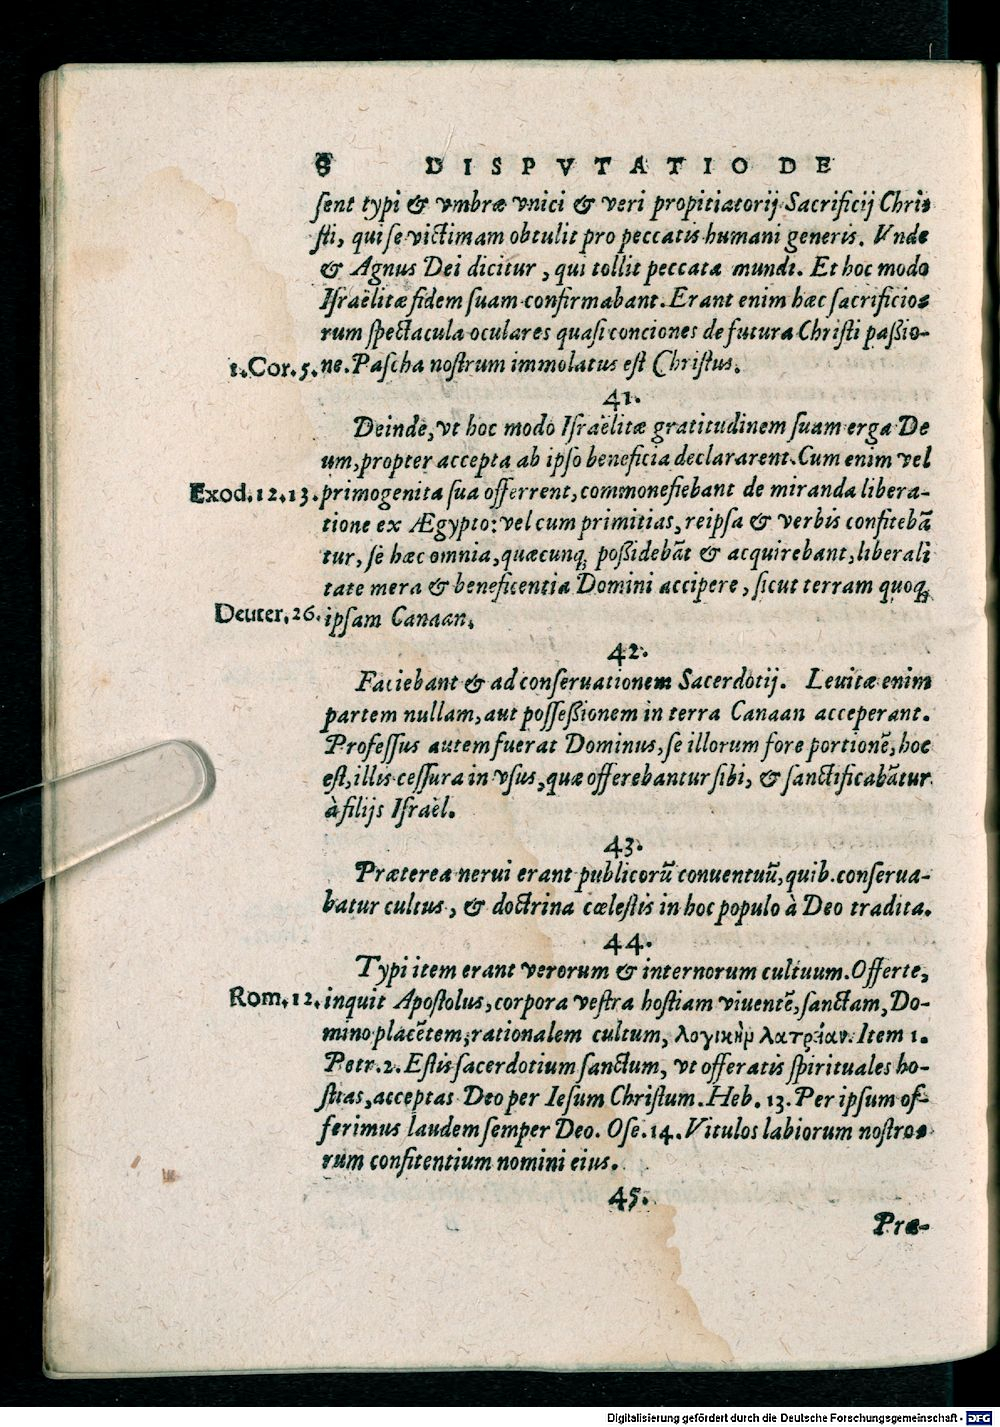 8 DISPVTATIO DE
sent typi & vmbræ vnici & veri propitiatorij Sacrificij Chri-
sti, qui se victimam obtulit pro peccatis humani generis. Vnde
& Agnus Dei dicitur, qui tollit peccata mundi. Et hoc modo
Israëlitæ fidem suam confirmabant. Erant enim hæc sacrificio-
rum spectacula oculares quasi conciones de futura Christi passio-
1. Cor. 5. ne. Pascha nostrum immolatus est Christus.
41.
Deinde, vt hoc modo Israëlitæ gratitudinem suam erga De
um, propter accepta ab ipso beneficia declararent. Cum enim vel
Exod. 12. 13. primogenita sua offerrent, commonefiebant de miranda libera-
tione ex Ægypto: vel cum primitias, reipsa & verbis confitebā
tur, se hæc omnia, quæcunq; possidebāt & acquirebant, liberali
tate mera & beneficentia Domini accipere, sicut terram quoq;
Deuter. 26. ipsam Canaan.
42.
Faciebant & ad conseruationem Sacerdotij. Leuitæ enim
partem nullam, aut possessionem in terra Canaan acceperant.
Professus autem fuerat Dominus, se illorum fore portionē, hoc
est, illis cessura in vsus, quæ offerebantur sibi, & sanctificabātur
à filijs Israël.
43.
Præterea nerui erant publicorū conuentuū, quib. conserua-
batur cultus, & doctrina cœlestis in hoc populo à Deo tradita.
44.
Typi item erant verorum & internorum cultuum. Offerte,
Rom. 12. inquit Apostolus, corpora vestra hostiam viuentē, sanctam, Do-
mino placētem, rationalem cultum, λογικὴν λατρείαν. Item 1.
Petr. 2. Estis sacerdotium sanctum, vt offeratis spirituales ho-
stias, acceptas Deo per Iesum Christum. Heb. 13. Per ipsum of-
ferimus laudem semper Deo. Ose. 14. Vitulos labiorum nostro-
rum confitentium nomini eius.
45.
Præ-
Digitalisierung gefördert durch die Deutsche Forschungsgemeinschaft - DFG